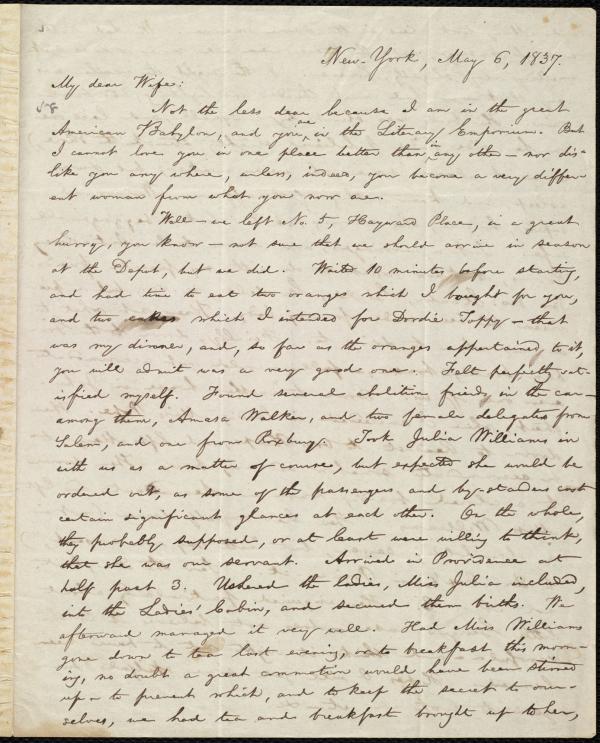 New-York, May 6, 1837.
My dear Wife:
58
Not the less dear because I am in the great
American Babylon, and you are in the Literary Emporium. But
I cannot love you in one place better than in any other — nor dis-
like you any where, unless, indeed, you become a very differ-
ent woman from what you now are.
Well — we left No. 5, Hayward Place, in a great
hurry, you know — not sure that we should arrive in season
at the Depot, but we did. Waited 10 minutes before starting,
and had time to eat two oranges which I bought for you,
and two cakes which I intended for Dordie Toppy — that
was my dinner, and, so far as the oranges appertained to it,
you will admit was a very good one. Felt perfectly sat-
isfied myself. Found several abolition friends in the car —
among them, Amasa Walker, and two female delegates from
Salem, and one from Roxbury. Took Julia Williams in
with us as a matter of course, but expected she would be
ordered out, as some of the passengers and by-standers cast
certain significant glances at each other. On the whole,
they probably supposed, or at least were willing to think,
that she was our servant. Arrived in Providence at
half past 3. Ushered the ladies, Miss Julia included,
into the Ladies' Cabin, and secured them births. We
afterward managed it very well. Had Miss Williams
gone down to tea last evening, or to breakfast this morn-
ing, no doubt a great commotion would have been stirred
up — to prevent which, and to keep the secret to our-
selves, we had tea and breakfast brought up to her,